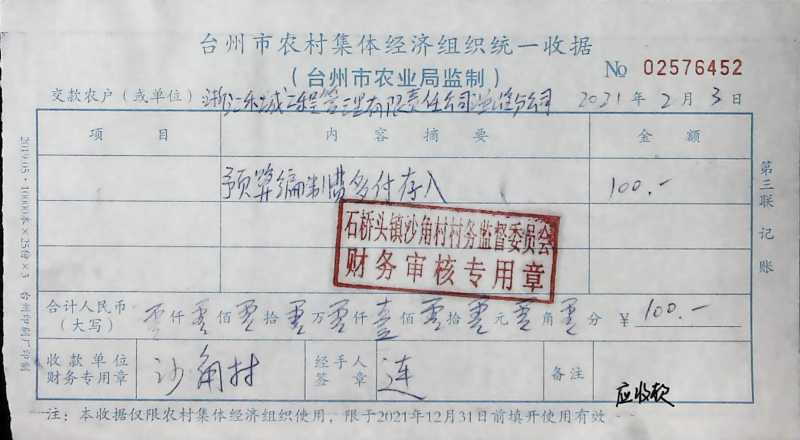 台州市农村集体经济组织统一收据
（台州市农业局监制） No 02576452
交款农户（或单位） 管理有限责任公司 分公司 2021年2月3日
项目 内容摘要 金额
预算编制费多付存入 100.-
石桥头镇沙角村村务监督委员会
财务审核专用章
合计人民币（大写） 零仟零佰零拾零万零仟壹佰零拾零元零角零分 ¥100.-
收款单位财务专用章 沙角村 经手人签章 连 备注 应收款
注：本收据仅限农村集体经济组织使用，限于2021年12月31日前填开使用有效
第三联 记账
2019.05·10000本×25份×3 台州印刷厂印制